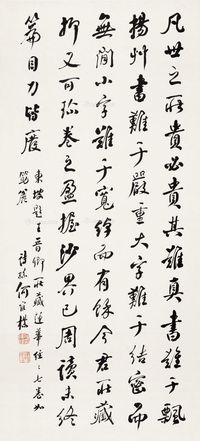 凡世之所貴必貴其難真書難于飄
揚艸書難于嚴重大字難于結密而
無間小字難于寬綽而有餘今君所藏
抑又可珍卷之盈握沙界已周讀未終
篇目力皆廢
東坡題王晉卿所藏蓮華經〻七卷如
筯麤
詩孫何維樸